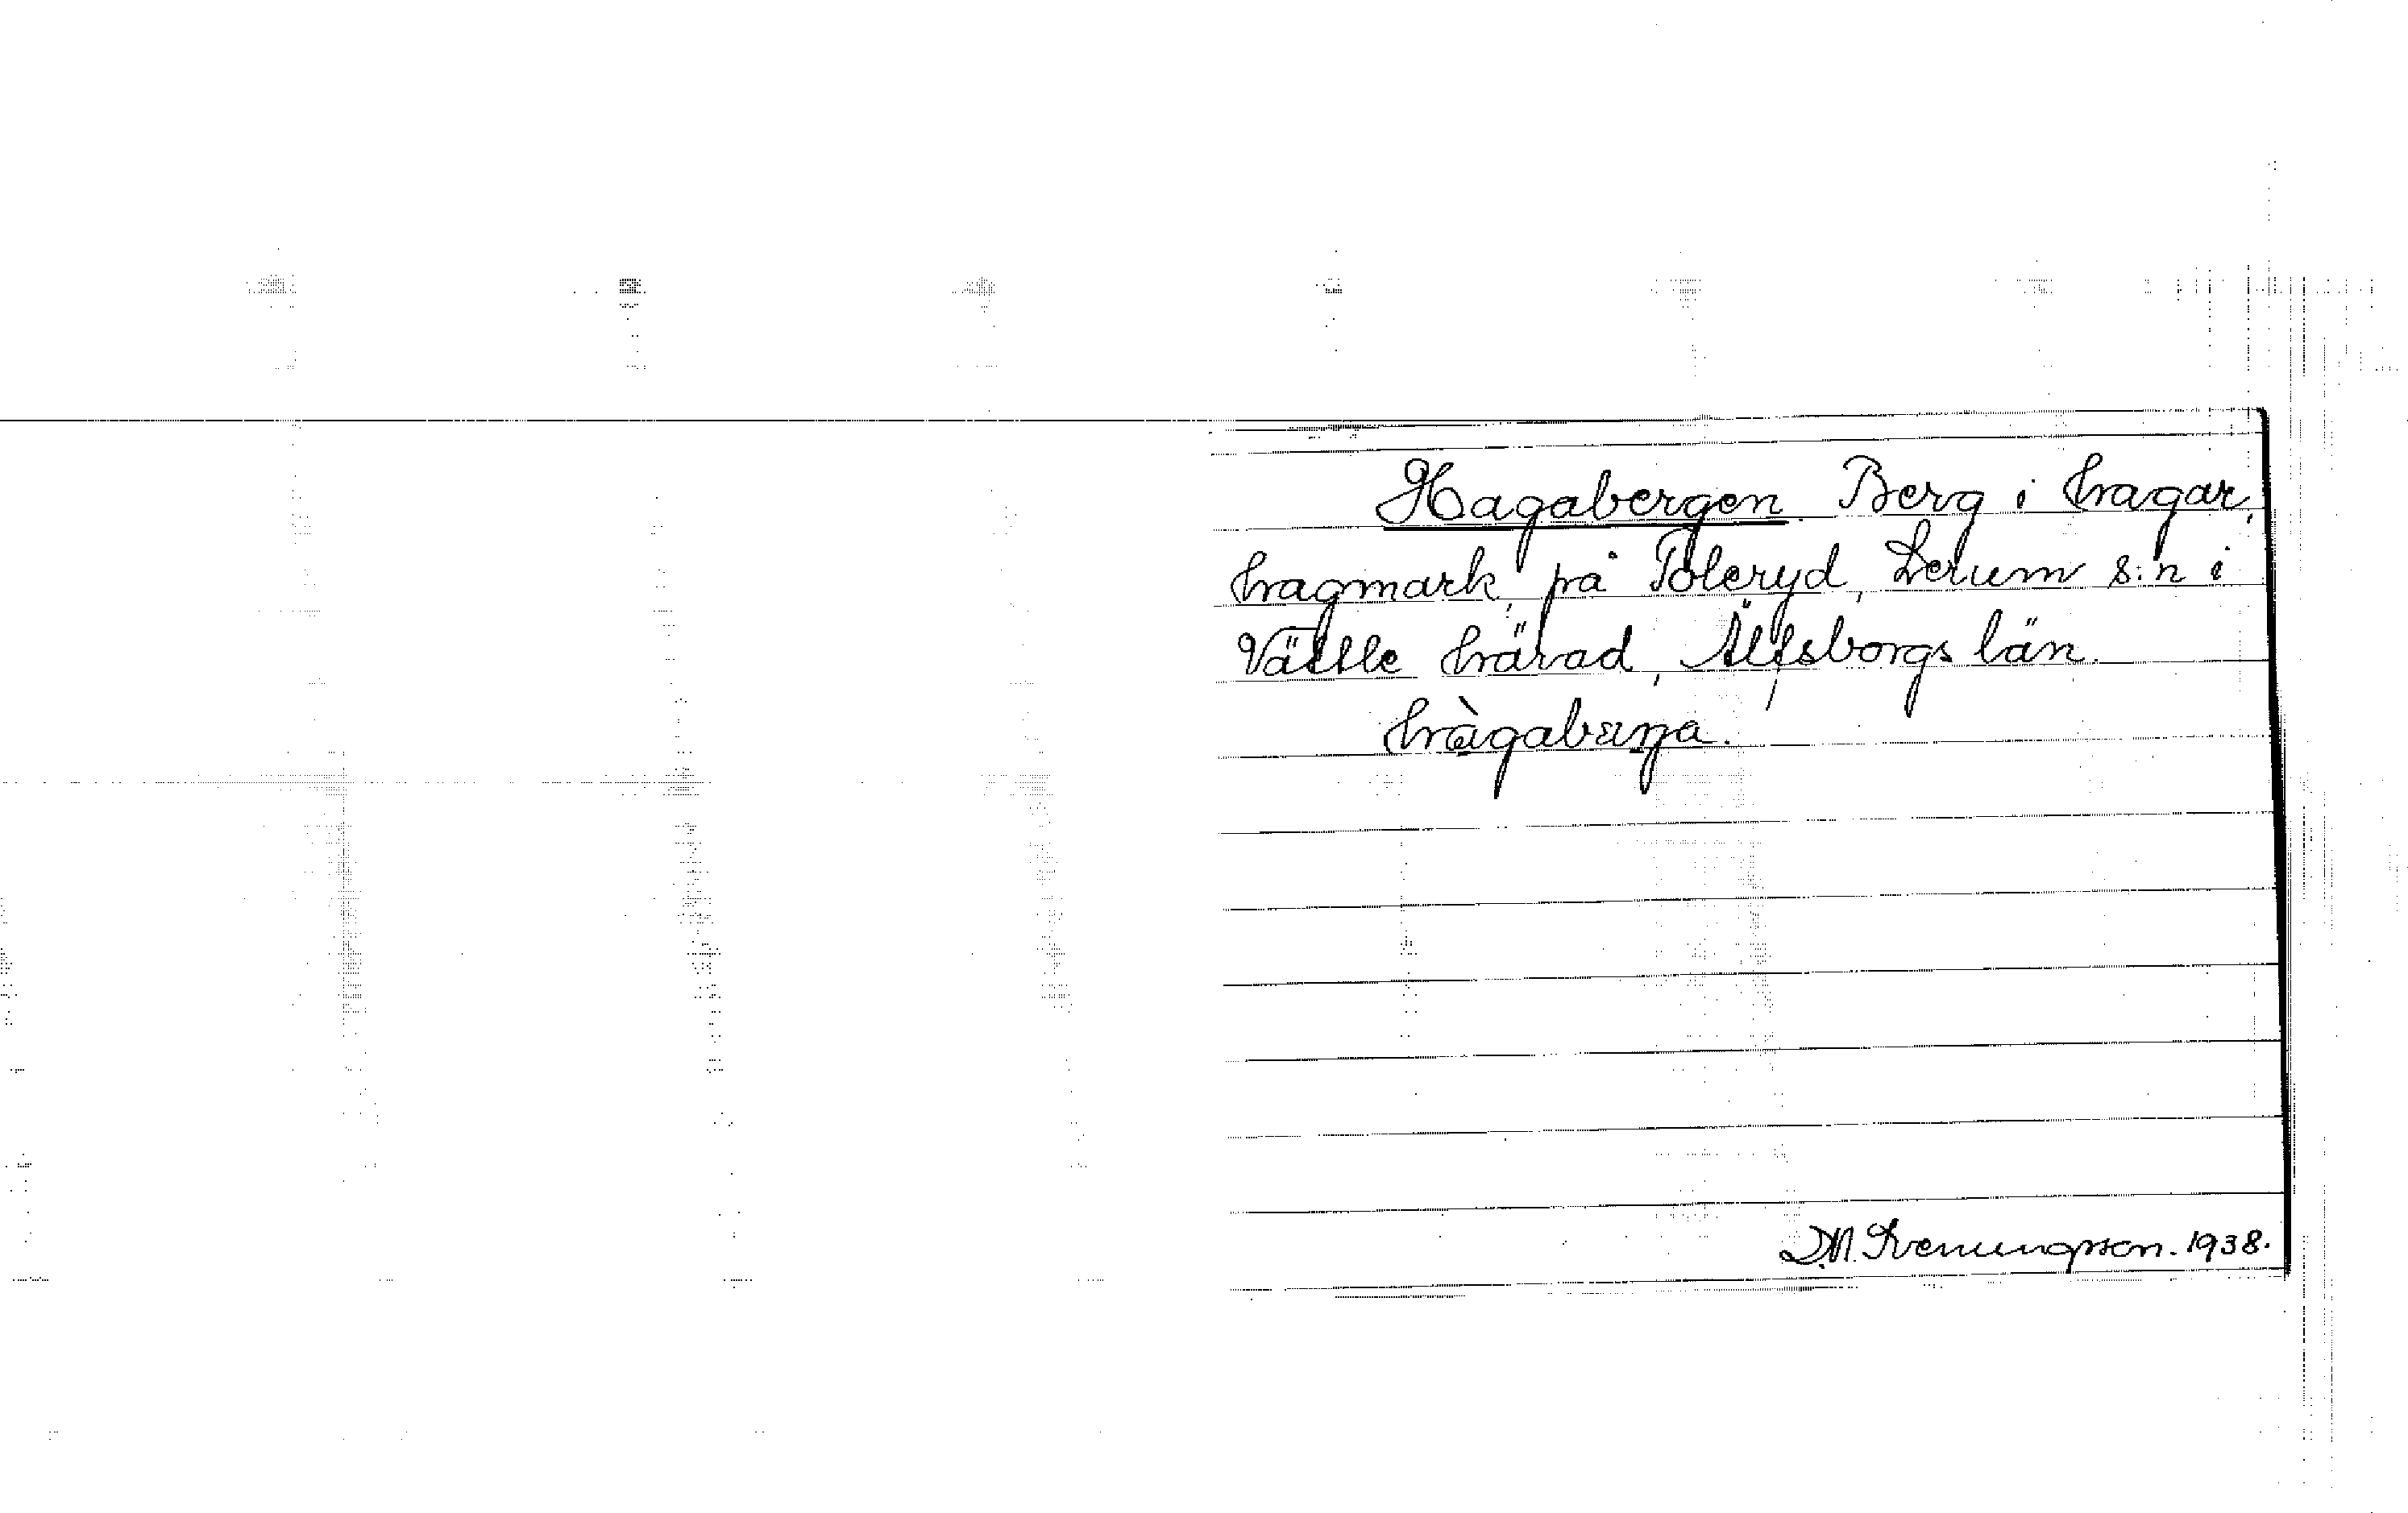 Hagabergen. Berg i hagar,
hagmark, på Töleryd, Lerum s:n i
Vättle härad, Älfsborgs län.
hàgabærja.
D.N. Svenungsson. 1938.